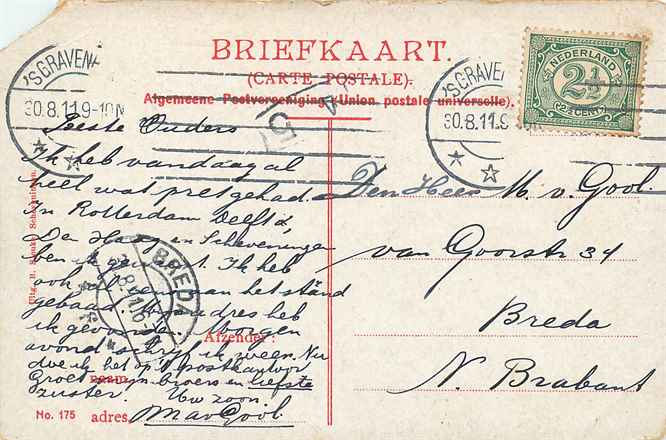 BRIEFKAART.
(CARTE POSTALE).
Algemeene Postvereeniging (Union postale universelle).
'SGRAVENH
30.8.11 9-10N
57
'SGRAVEN
30.8.11.9
NEDERLAND
2½
CENT
Beste Ouders
Ik heb vandaag al
heel wat pret gehad.
In Rotterdam Delft &
Den Haag en Scheveningen
ben ik geweest. Ik heb
ook al eens aan het stand
gebaad. adres heb
ik gevonden. Morgen
avond schrijf ik weer. Nu
doe ik het op 't postkantoor
Groet mijn broers en liefste
zuster. Uw zoon.
M av Gool.
BREDA
Afzender:
naam
No. 175 adres
Uitg. B. Scheveningen.
Den Heer M. v. Gool.
van Goorstr 34
Breda
N. Brabant